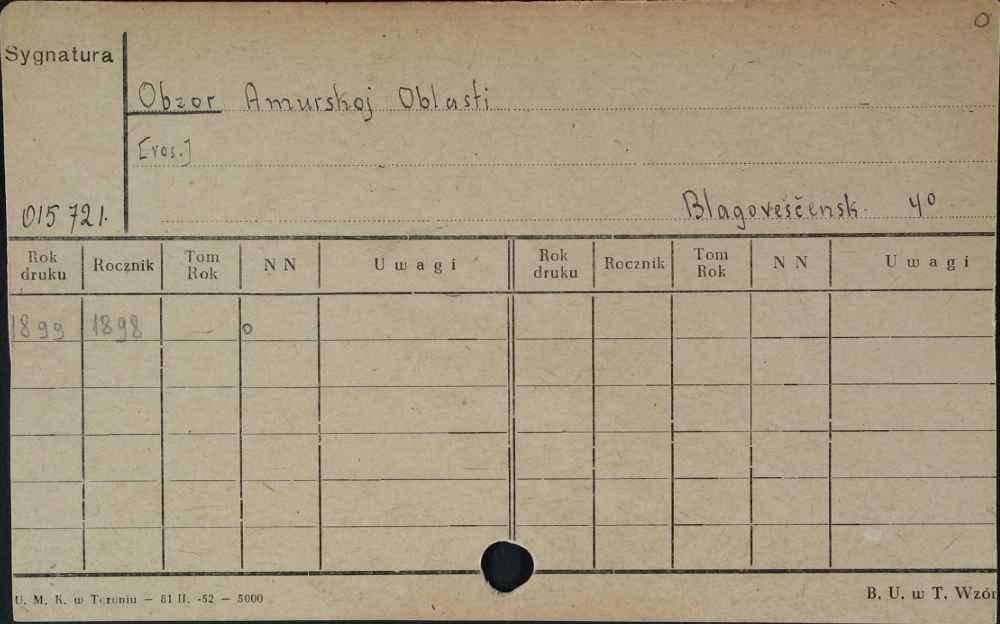 O
Sygnatura
Obzor Amurskoj Oblasti
[ros.]
015721.
Blagoveščensk. 4o
Rok druku Rocznik Tom Rok N N Uwagi Rok druku Rocznik Tom Rok N N Uwagi
1899 1898 — o
U. M. K. w Toruniu — 81 II. -52 — 5000
B. U. w T. Wzór